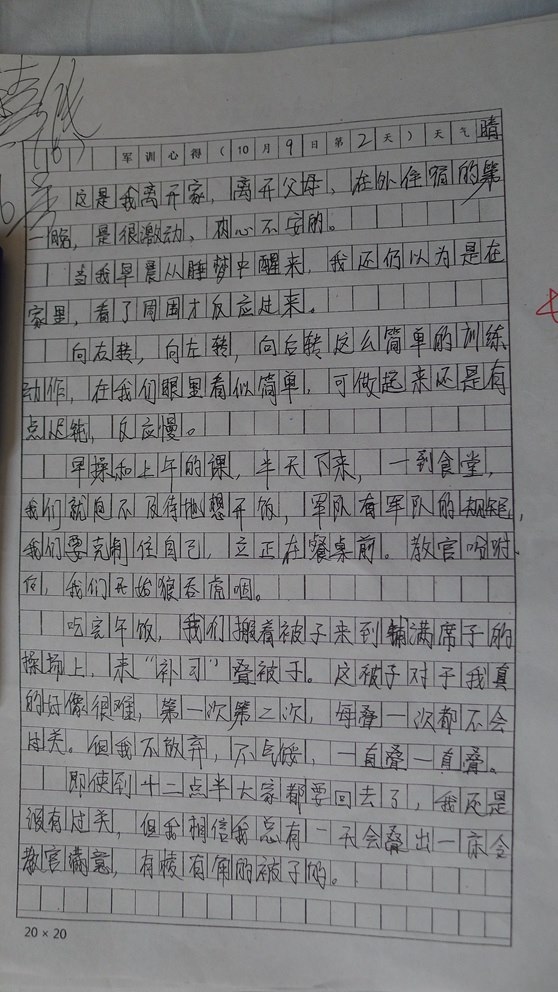 军训心得(10月9日第2天)天气晴
这是我离开家,离开父母、在外住宿的第
一晚,是很激动、内心不安的。
当我早晨从睡梦中醒来,我还仍以为是在
家里,看了周围才反应过来。
向右转,向左转,向后转这么简单的训练
动作,在我们眼里看似简单,可做起来还是有
点迟钝,反应慢。
早操和上午的课,半天下来,一到食堂,
我们就迫不及待地想开饭,军队有军队的规矩,
我们要克制住自己,立正在餐桌前。教官吩咐
后,我们开始狼吞虎咽。
吃完午饭,我们搬着被子来到铺满席子的
操场上,来“补习”叠被子。这被子对于我真
的好像很难,第一次第二次,每叠一次都不会
过关。但我不放弃,不气馁,一直叠一直叠。
即使到十二点半大家都要回去了,我还是
没有过关,但我相信我总有一天会叠出一床令
教官满意,有棱有角的被子的。
20×20